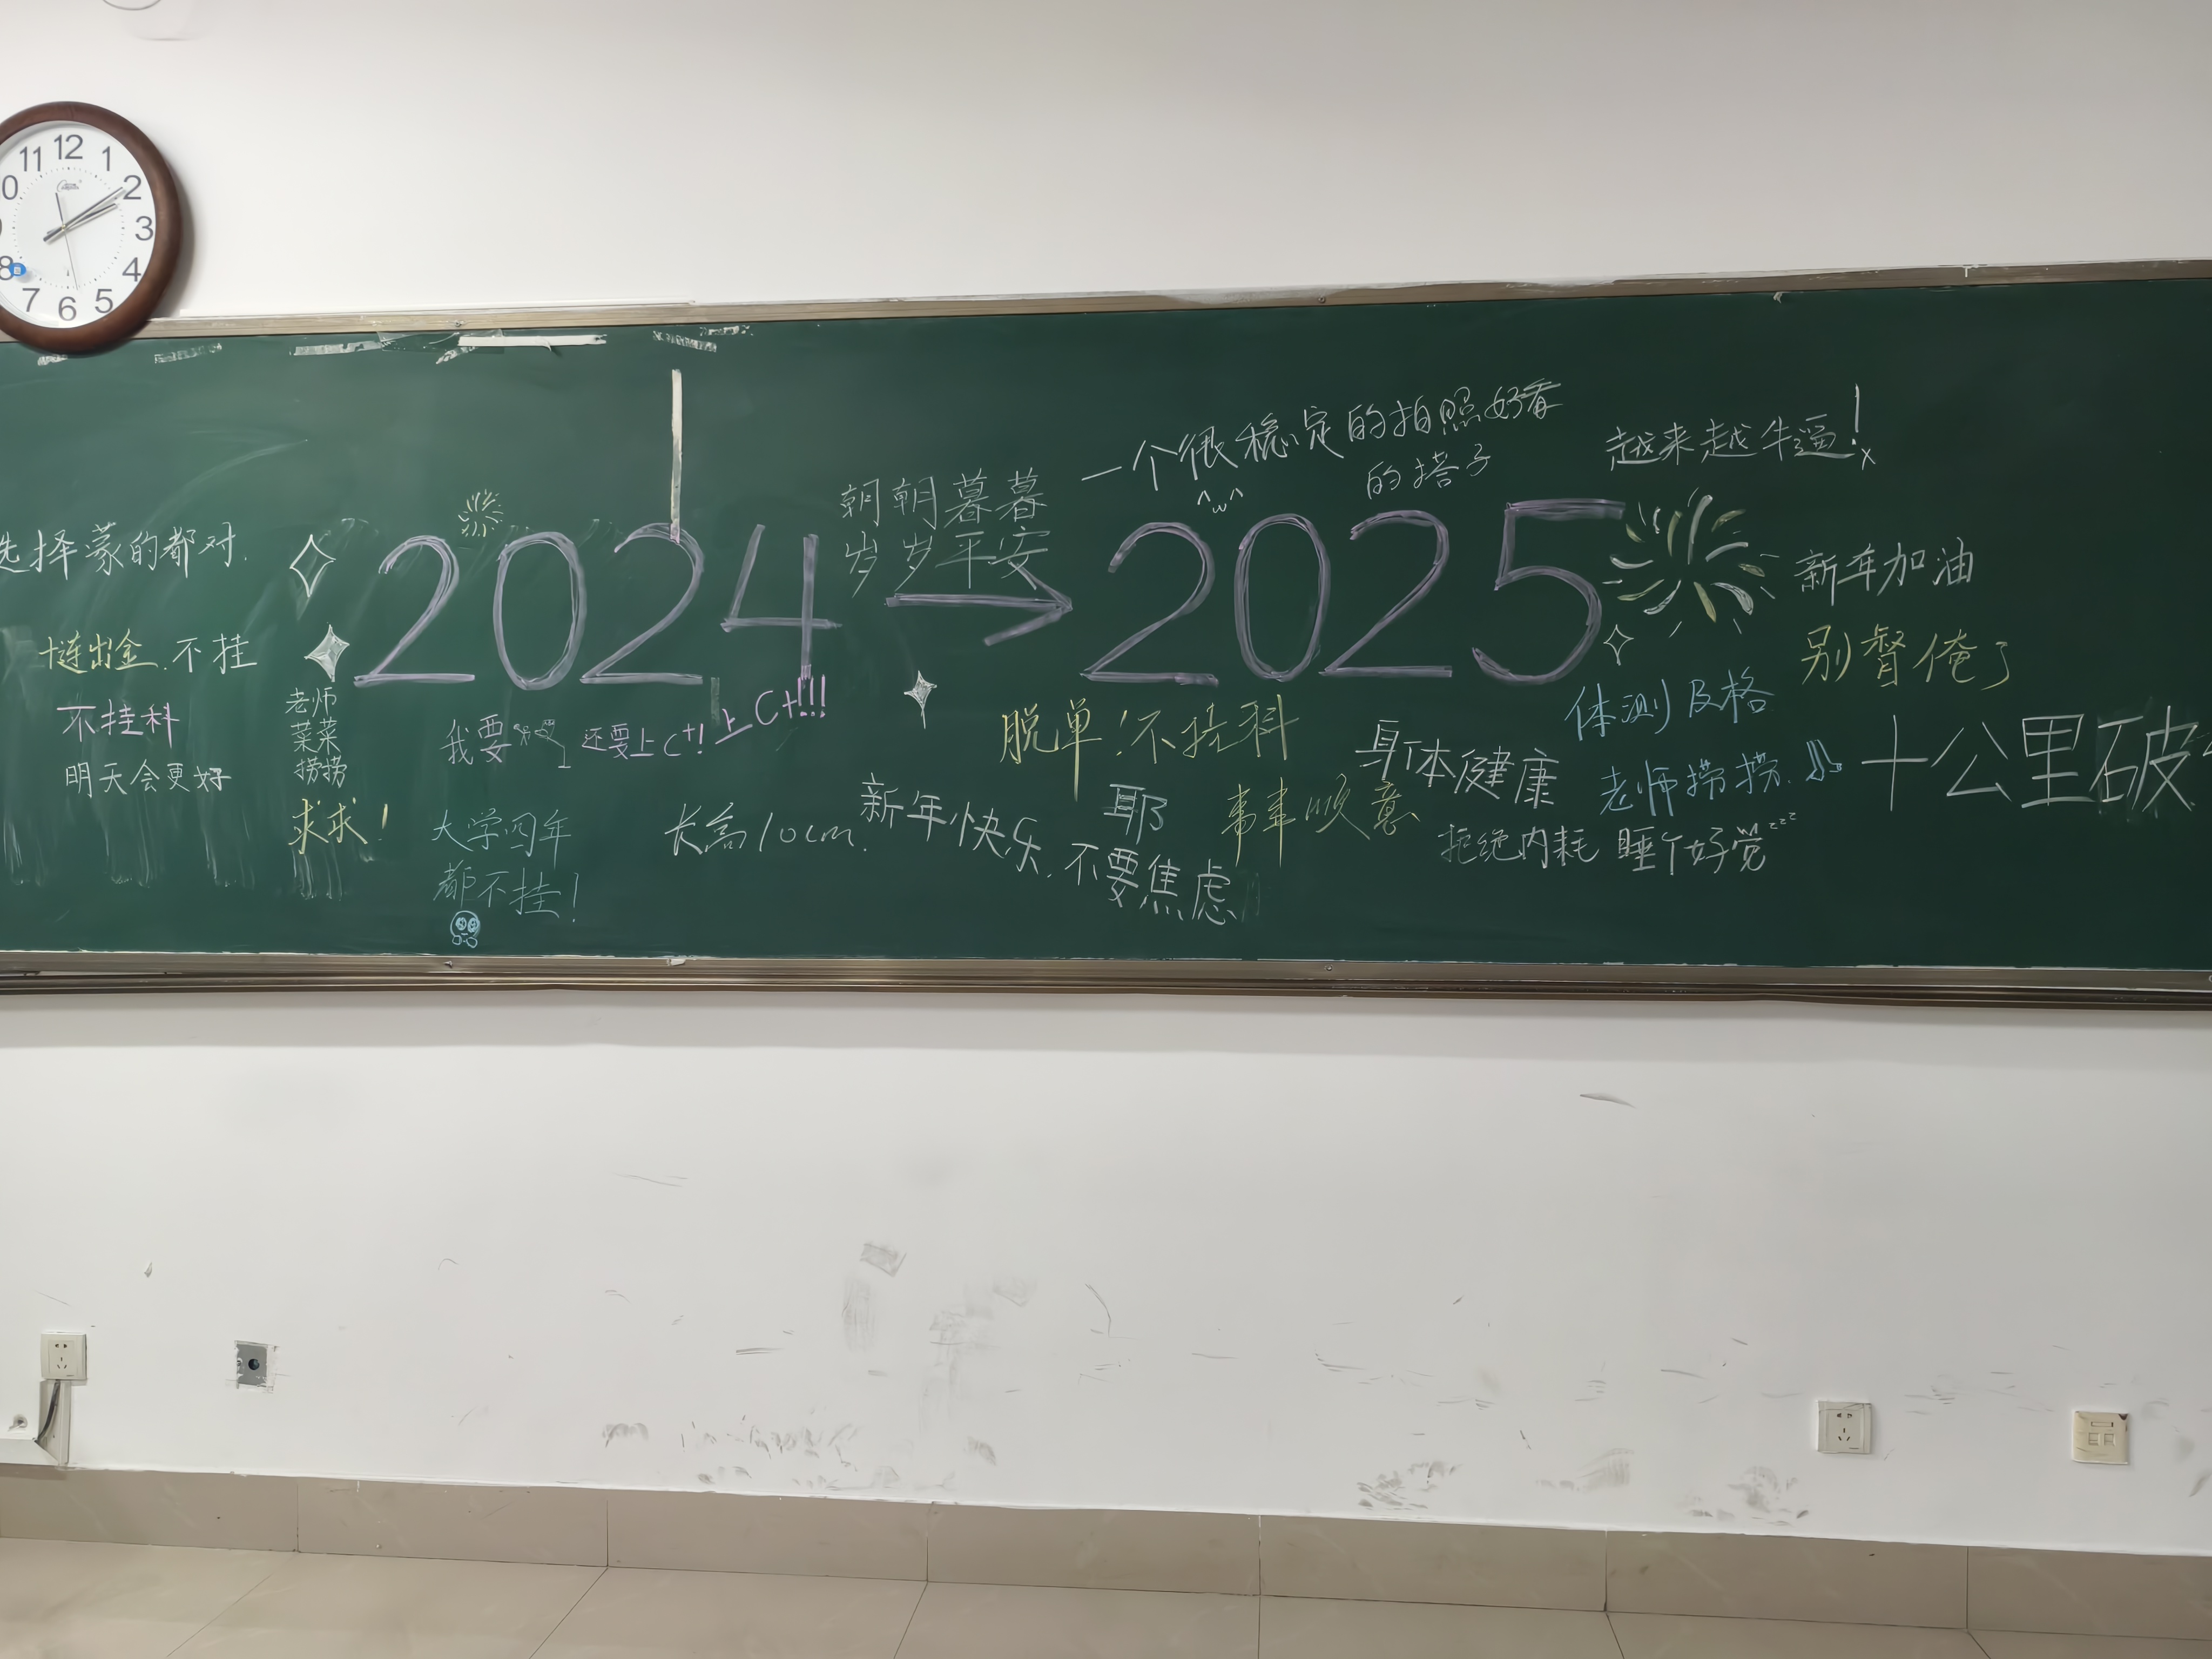 12
11
1
2
3
4
5
6
7
8
一个很稳定的拍照好看
的搭子
越来越牛逼!
朝朝暮暮
岁岁平安
选择蒙的都对.
2024
2025
新年加油
十连出金.不挂
别督俺了
不挂科
明天会更好
老师
菜菜
捞捞
求求!
我要
还要上C+!
上C+!!!
脱单!不挂科
体测及格
身体健康
老师捞捞.
十公里破
大学四年
都不挂!
长高10cm.
新年快乐.
耶
不要焦虑
事事顺意
拒绝内耗
睡个好觉zzz